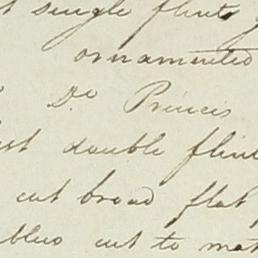 single flint
ornamented
Do Princis
double flin
cut broad flat
blers cut to mat